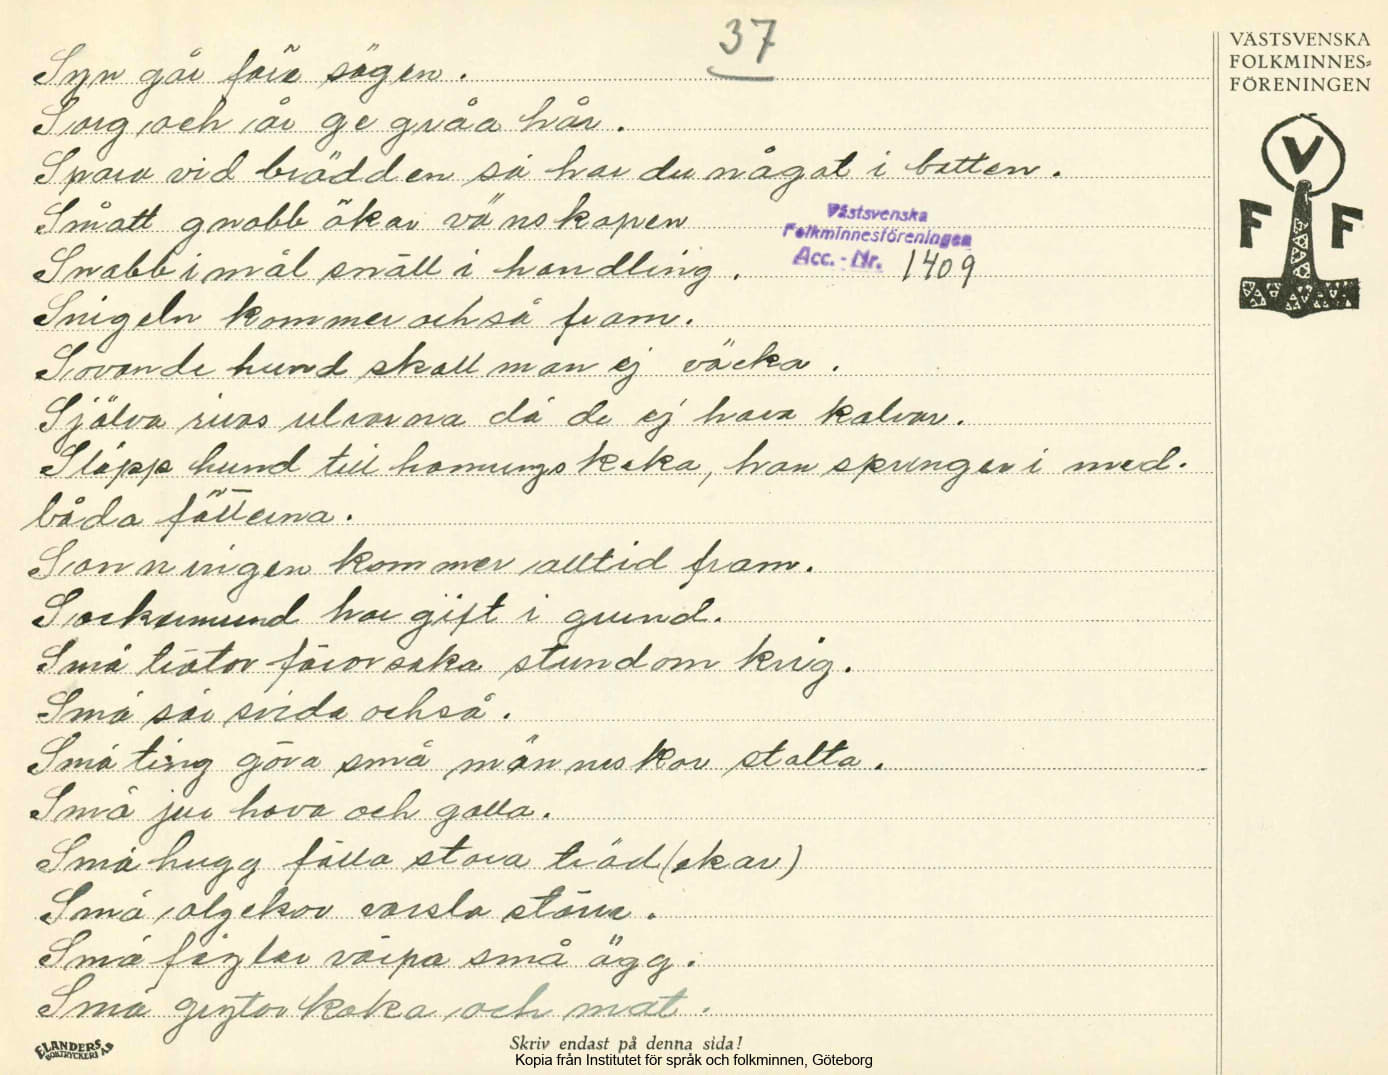 37
Syn går före sägen.
Sorg och år ge gråa hår.
Spara vid brädden så har du något i botten.
Smått gnabb ökar vänskapen
Snabb i mål snäll i handling.
Snigeln kommer också fram.
Sovande hund skall man ej väcka.
Själva rivas ulvarna då de ej hava kalvar.
Släpp hund till honungskaka, han springer i med.
båda fötterna.
Sanningen kommer alltid fram.
Sockermund har gift i grund.
Små trätor förorsaka stundom krig.
Små sår svida också.
Små ting göra små människor stolta.
Små jur hava och galla.
Små hugg fälla stora träd (ekar)
Små
Små fåglar värpa små ägg.
Små grytor koka och mat.
Västsvenska
Folkminnesföreningen
Acc.-Nr. 1409
VÄSTSVENSKA
FOLKMINNES-
FÖRENINGEN
V
F F
ELANDERS
BOKTRYCKERI AB
Skriv endast på denna sida!
Kopia från Institutet för språk och folkminnen, Göteborg